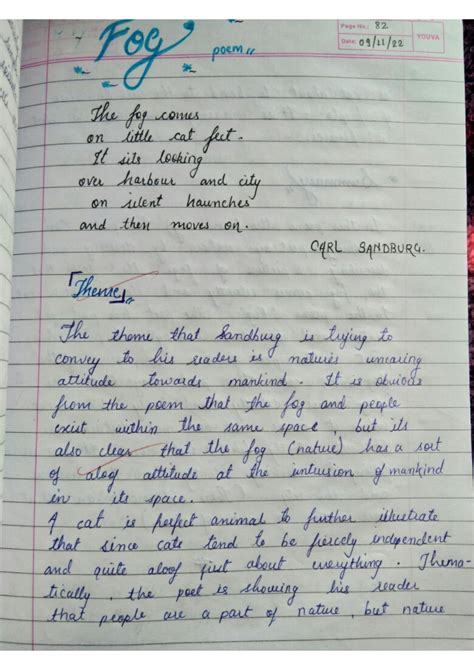 Page No.: 82
Date: 09/11/22
YOUVA
Fog
poem
The fog comes
on little cat feet.
It sits looking
over harbour and city
on silent haunches
and then moves on.
CARL SANDBURG.
「Theme」
The theme that Sandburg is trying to
convey to his readers is natures uncaring
attitude towards mankind. It is obvious
from the poem that the fog and people
exist within the same space, but its
also clear that the fog (nature) has a sort
of aloof attitude at the intrusion of mankind
in its space.
A cat is perfect animal to further illustrate
that since cats tend to be fiercely independent
and quite aloof just about everything. Thema-
tically, the poet is showing his reader
that people are a part of nature, but nature